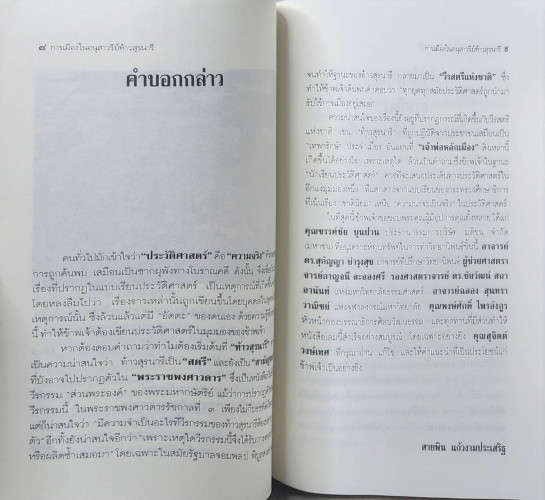 ๘ การเมืองในอนุสาวรีย์ท้าวสุรนารี
คำบอกกล่าว
คนทั่วไปมักเข้าใจว่า "ประวัติศาสตร์" คือ "ความจริง"
การถูกค้นพบ เสมือนเป็นซากผุพังทางโบราณคดี ดังนั้น
เรื่องที่ปรากฏในแบบเรียนประวัติศาสตร์ เป็นเหตุการณ์ที่เกิดขึ้น
โดยหลงลืมไปว่า เรื่องราวเหล่านั้นถูกเขียนขึ้นโดยบุคคล
เหตุการณ์นั้น ซึ่งล้วนแล้วแต่มี "อัตตะ" ของตนเอง ด้วยความ
นี้ ทำให้ข้าพเจ้าต้องเขียนประวัติศาสตร์ในมุมมองของข้าพเจ้า
หากต้องตอบคำถามว่าทำไมต้องเริ่มต้นที่ "ท้าวสุรนารี"
เป็นความน่าสนใจว่า ท้าวสุรนารีเป็น "สตรี" และยังเป็น
ที่บังอาจไปปรากฏตัวใน "พระราชพงศาวดาร" ซึ่งเป็นหนังสือ
วีรกรรม "ส่วนพระองค์" ของมหากษัตริย์ แม้ว่าการปรากฏ
วีรกรรมนี้ ในพระราชพงศาวดารรัชกาลที่ ๓ เพียงไม่กี่บรรทัด
แต่ก็น่าสนใจว่า "มีความเป็นมาอะไรที่วีรกรรมของท้าวสุรนารี
ตัว" อีกทั้งยังน่าสนใจอีกว่า "เพราะเหตุใดวีรกรรมนี้จึงได้รับการ
หรือผลิตซ้ำเสมอมา" โดยเฉพาะในสมัยรัฐบาลจอมพลป. พิบูลสงคราม
การเมืองในอนุสาวรีย์ท้าวสุรนารี ๙
จนทำให้ฐานะของท้าวสุรนารี กลายมาเป็น "วีรสตรีแห่งชาติ" ซึ่ง
ทำให้ข้าพเจ้าค้นพบคำตอบว่า "ทุกยุคทุกสมัยประวัติศาสตร์ถูกนำมา
รับใช้การเมืองอยู่เสมอ"
ความน่าสนใจของเรื่องนี้ยังอยู่ที่ปรากฏการณ์ที่เกิดขึ้นกับวีรสตรี
แห่งชาติ เช่น "ท้าวสุรนารี" ที่ถูกปฏิบัติจากประชาชนเสมือนเป็น
"เทพารักษ์" ประจำเมือง อันแผกที่ "เจ้าพ่อหลักเมือง" สิ่งเหล่านี้
เกิดขึ้นได้อย่างไร เพราะเหตุใด ล้วนเป็นคำถามซึ่งข้าพเจ้าในฐานะ
"นักเรียนประวัติศาสตร์" ควรที่จะเสนอประเด็นทางประวัติศาสตร์ใน
อีกแง่มุมมองหนึ่ง ที่แตกต่างจากแบบเรียนของกระทรวงศึกษาธิการ
ที่เน้นเรื่อง "ชาตินิยม" เหนือ "ความน่าจะเป็นจริง" ในประวัติศาสตร์
ในที่สุดนี้ข้าพเจ้าขอขอบพระคุณผู้มีอุปการคุณทั้งหลาย ได้แก่
คุณขรรค์ชัย บุนปาน ประธานกรรมการบริษัท มติชน จำกัด
(มหาชน) ที่อนุเคราะห์ทุนทรัพย์ในการทำวิทยานิพนธ์ชิ้นนี้ อาจารย์
ดร.สุกัญญา บำรุงสุข อาจารย์ที่ปรึกษาวิทยานิพนธ์ ผู้ช่วยศาสตรา
จารย์กาญจนี ละอองศรี รองศาสตราจารย์ ดร.ชัยวัฒน์ สถา
อานันท์ แห่งมหาวิทยาลัยธรรมศาสตร์ อาจารย์ฉลอง สุนทรา
วาณิชย์ แห่งจุฬาลงกรณ์มหาวิทยาลัย คุณพงษ์ศักดิ์ ไพรอังกูร
หัวหน้ากองบรรณาธิการศิลปวัฒนธรรม และทุกท่านที่มีส่วนทำให้
หนังสือเล่มนี้สำเร็จอย่างสมบูรณ์ โดยเฉพาะอย่างยิ่ง คุณสุจิตต์
วงษ์เทศ ที่กรุณาอ่าน แก้ไข และให้คำแนะนำที่เป็นประโยชน์แก่
ข้าพเจ้าเป็นอย่างยิ่ง
สายพิน แก้วงามประเสริฐ